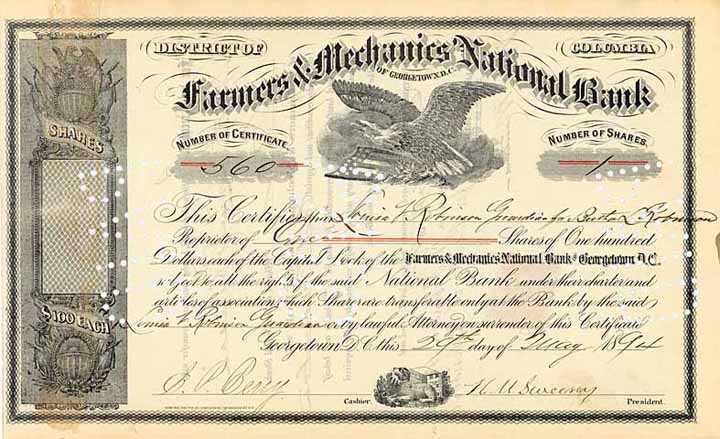 DISTRICT OF COLUMBIA
Farmers & Mechanics National Bank
OF GEORGETOWN, D.C.
NUMBER OF CERTIFICATE.
560
NUMBER OF SHARES.
1
SHARES
$100 EACH
This Certifies that Louisa V. Robinson Guardian for Burton L Robinson
Proprietor of One Shares of One hundred
Dollars each of the Capital Stock of the Farmers & Mechanics National Bank of Georgetown D.C.
subject to all the rights of the said National Bank under their charter and
articles of association, which Shares are transferable only at the Bank by the said
Louisa V Robinson Guardian or by lawful Attorney on surrender of this Certificate
Georgetown D.C. this 29th day of May 1894
Cashier.
H. M. Sweeny
President.